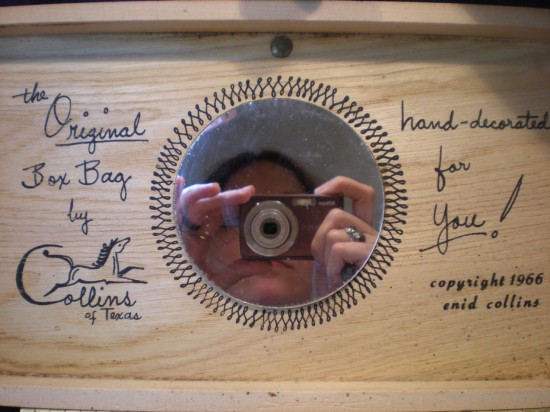 the
Original
Box Bag
by
Collins
of Texas
hand-decorated
for
You!
copyright 1966
enid collins